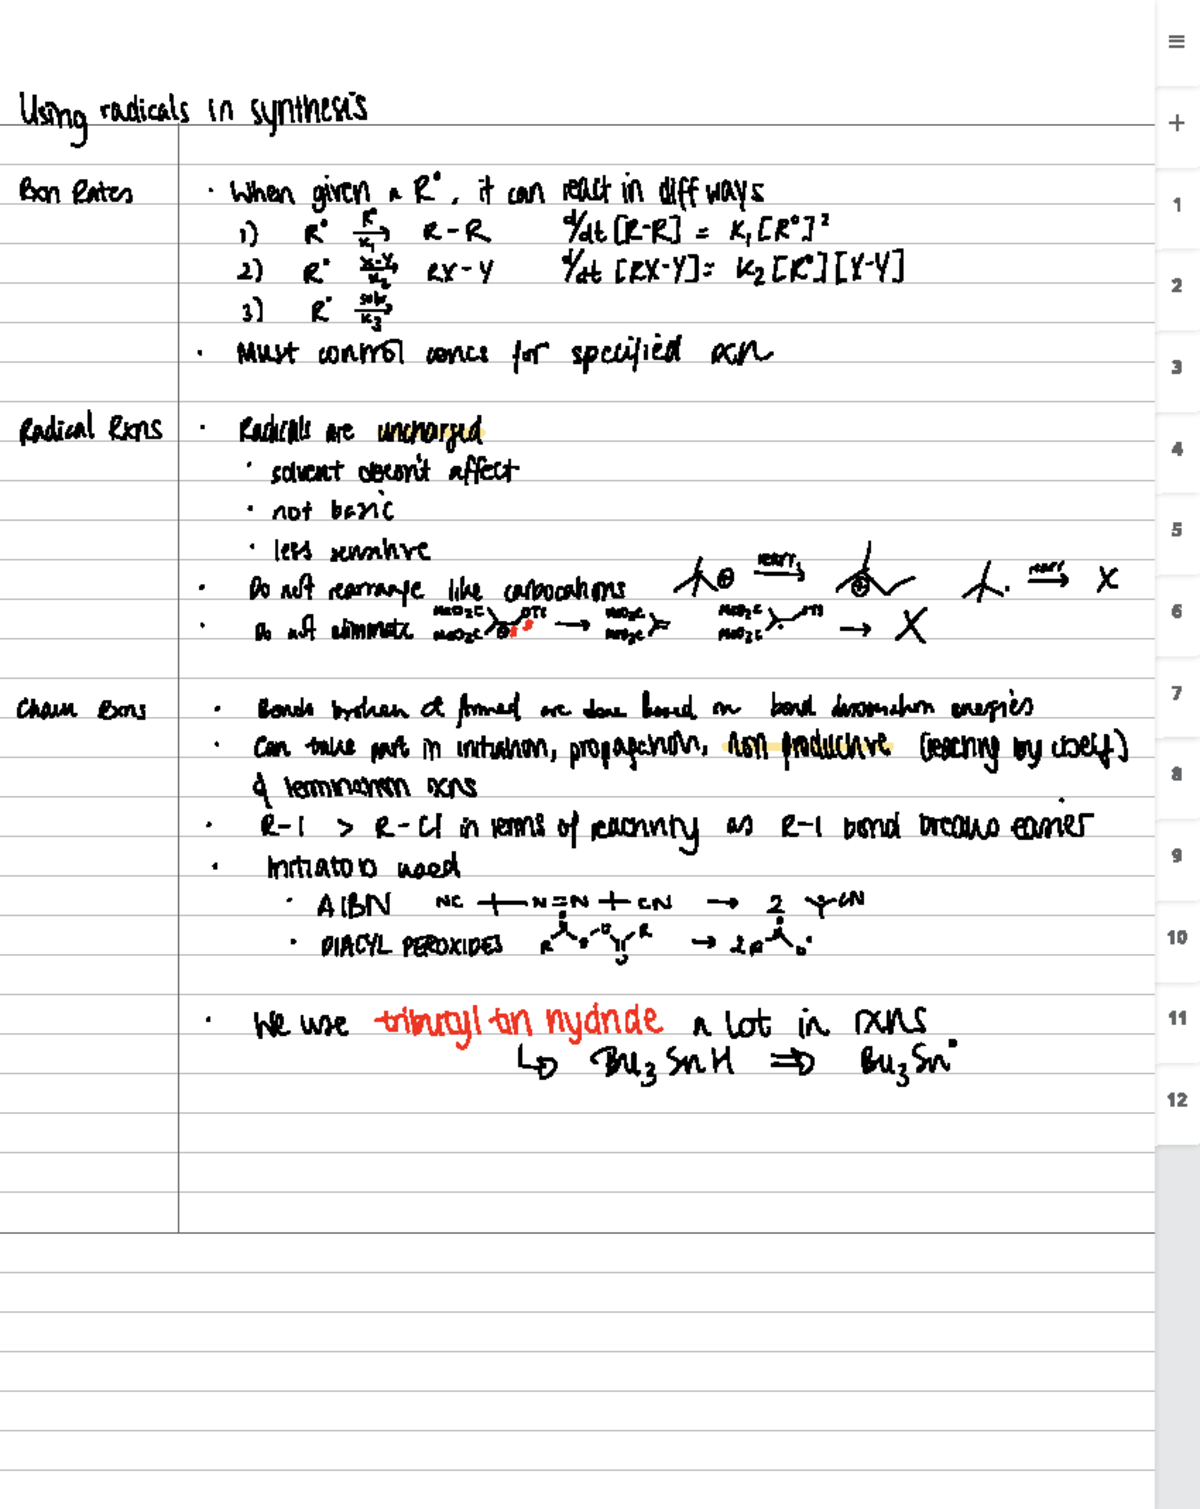 Using radicals in synthesis
Rxn Rates
· When given a R•, it can react in diff ways
1) R• R• K₁ R-R d/dt [R-R] = K₁[R•]²
2) R• X-Y K₂ RX-Y d/dt [RX-Y] = K₂[R•][X-Y]
3) R• solv K₃
· Must control concs for specified rxn
Radical Rxns
· Radicals are uncharged
· solvent doesn't affect
· not basic
· less sensitive
· Do not rearrange like carbocations ⊕ rearr. → ⊕ • rearr → X
· Do not eliminate MeO₂C MeO₂C ⊖ OTs → MeO₂C MeO₂C MeO₂C MeO₂C • OTs → X
Chain Rxns
· Bonds broken & formed are done based on bond dissociation energies
· Can take part in initiation, propagation, non productive (reacting by itself)
& termination rxns
· R-I > R-Cl in terms of reactivity as R-I bond breaks easier
· Initiators used
· AIBN NC N=N CN → 2 CN
· DIACYL PEROXIDES R O O O O R → 2 R O O•
· We use tributyl tin hydride a lot in rxns
↳ Bu₃SnH ⇒ Bu₃Sn•
≡
+
1
2
3
4
5
6
7
8
9
10
11
12